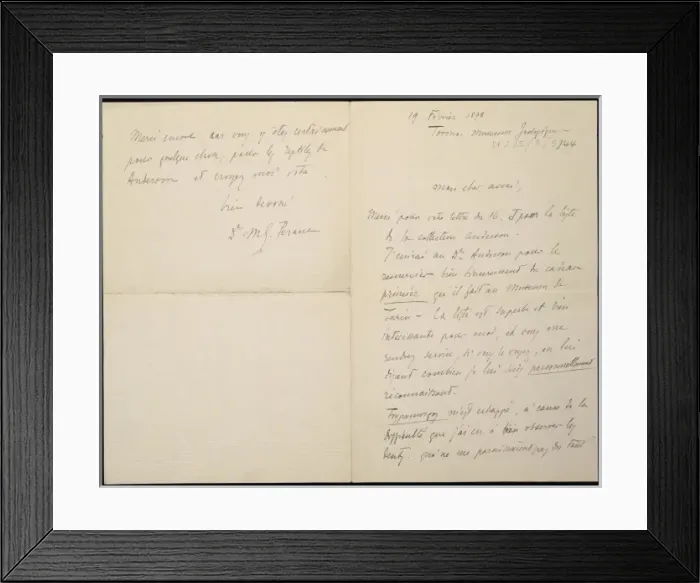 Merci encore car vous y êtes certainement
pour quelque chose, pour les reptiles du
Anderson et croyez moi votre
bien dévoué
Dr. M. G. Peracca
19 Février 1898
Torino Museum Zoologique
Mon cher ami,
Merci pour votre lettre du 16. & pour la liste
de la collection Anderson.
J'écrirai au Dr. Anderson pour le
remercier bien vivement du cadeau
précieux qu'il fait au Museum de
Turin - La liste est superbe et bien
intéressante pour moi, et vous me
rendrez service, si vous le voyez, en lui
disant combien je lui suis personnellement
reconnaissant.
m'est échappé, à cause de la
difficulté que j'ai eu à bien observer les
dents, qui ne me paraissaient pas du tout